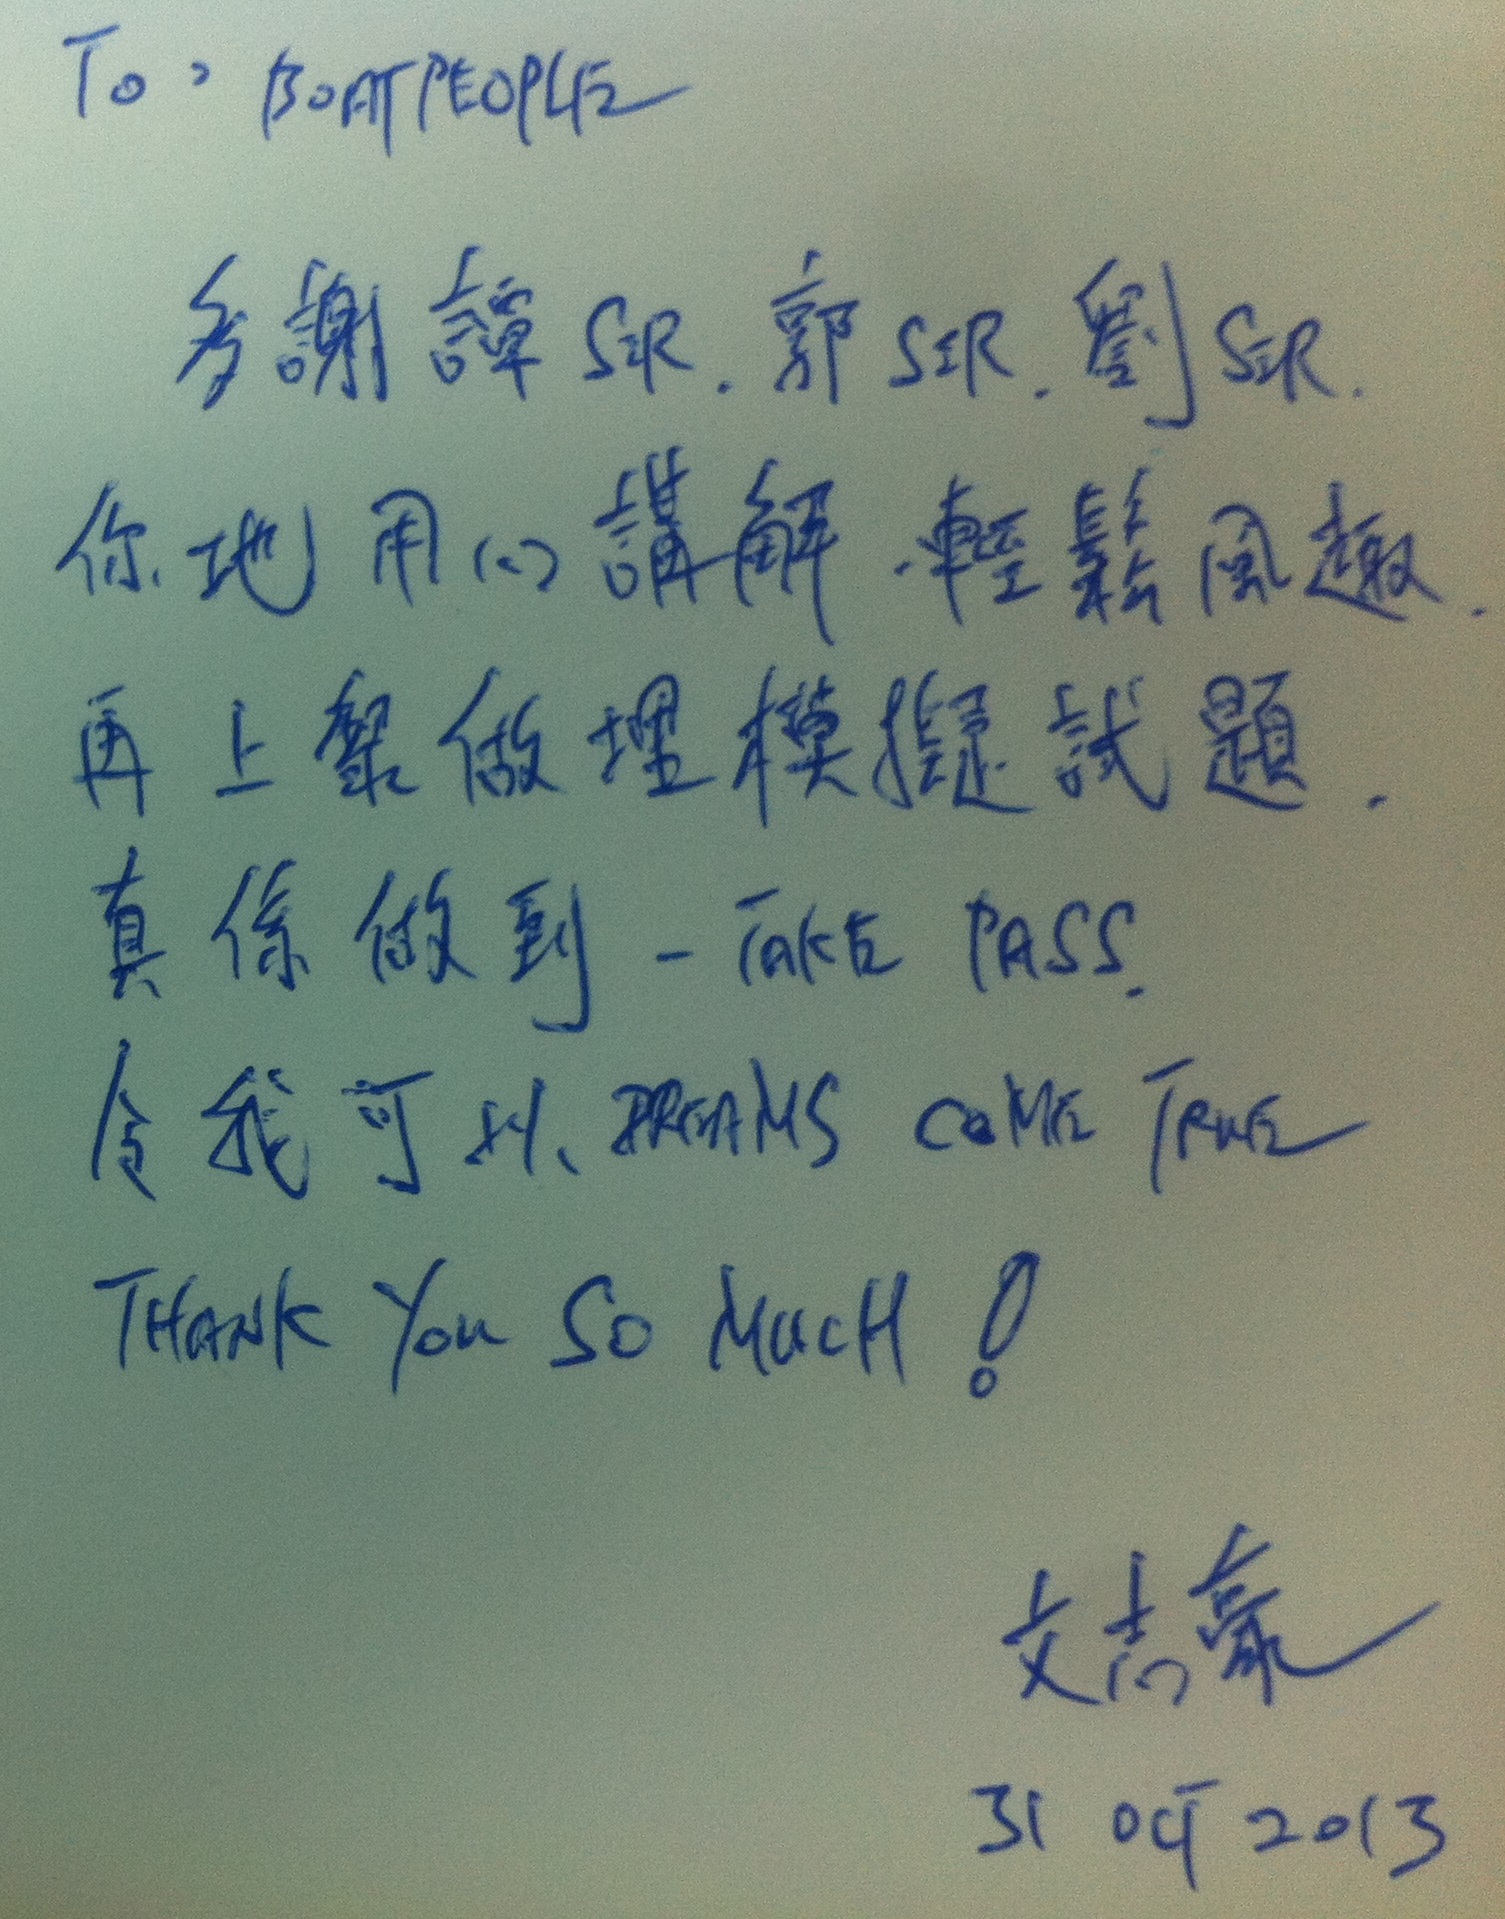 To, BOATPEOPLE
多謝譚SIR.郭SIR.劉SIR.
你地用心講解.輕鬆風趣.
再上堂做埋模擬試題.
真係做到一TAKE PASS.
令我可以DREAMS COME TRUE
THANK YOU SO MUCH!
文志豪
31 OCT 2013